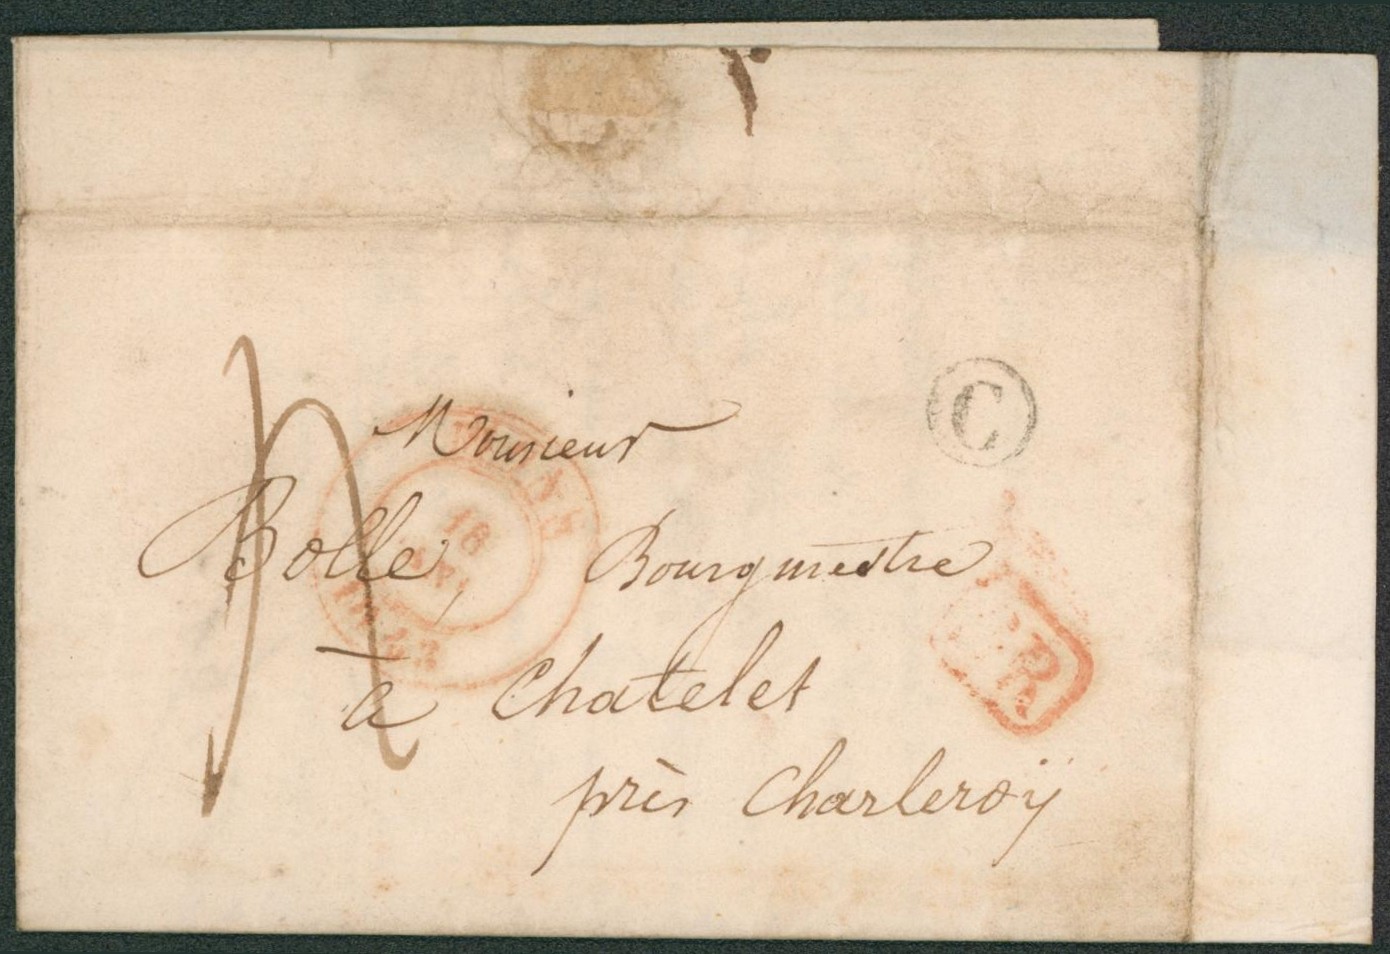 C
Monsieur
18
Bolle, Bourgmestre
R
à Chatelet
près Charleroÿ